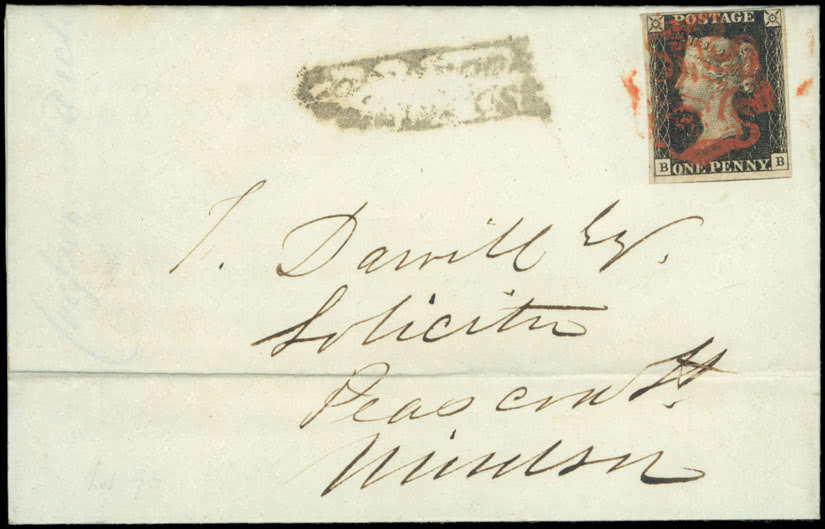 POSTAGE
B B
ONE PENNY
T. Darvill Esqr.
Solicitor
Peascod St.
Windsor